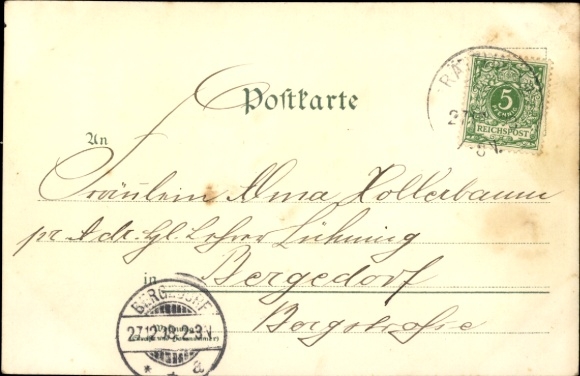 Postkarte
5
REICHSPOST
An
Fräulein Alma Hollerbaum
pr. Adr. Hl. Lehrer Lühning
in Bergedorf
Bergstraße
BERGEDORF
27.12.98.2-3N
* * a